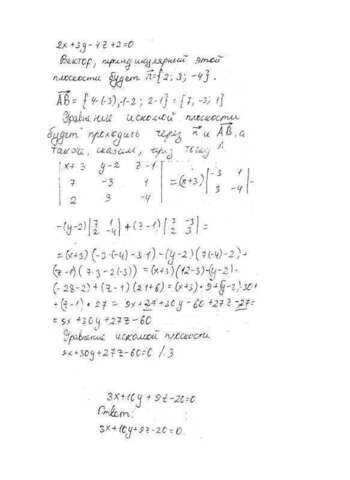 2x+3y-4z+2=0
Вектор, перпендикулярный этой
плоскости будет n={2; 3; -4}.
AB = {4-(-3),-1-2; 2-1} = {7, -3; 1}
Уравнение искомой плоскости
будет проходить через n и AB, а
также, скажем, через точку A
|x+3 y-2 z-1|
|7 -3 1| = (x+3)|-3 1; 3 -4| -
|2 3 -4|
-(y-2)|7 1; 2 -4| + (z-1)|7 -3; 2 3| =
=(x+3)(-3·(-4)-3·1)-(y-2)(7(-4)-2)+
(z-1)(7·3-2(-3)) = (x+3)(12-3)-(y-2)·
(-28-2)+(z-1)(21+6)=(x+3)·9+(y-2)30+
+(z-1)·27 = 9x+27+30y-60+27z-27=
=9x+30y+27z-60
Уравнение искомой плоскости
9x+30y+27z-60=0 /:3
3x+10y+9z-20=0
Ответ:
3x+10y+9z-20=0.